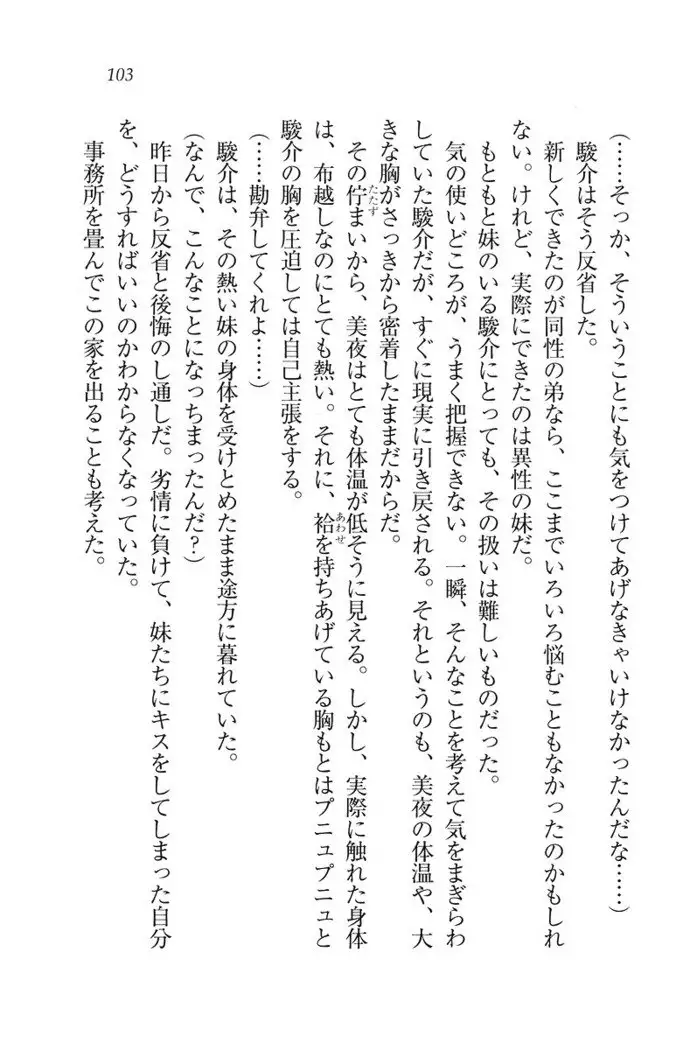 103
（……そっか、そういうことにも気をつけてあげなきゃいけなかったんだな……）
駿介はそう反省した。
新しくできたのが同性の弟なら、ここまでいろいろ悩むこともなかったのかもしれ
ない。けれど、実際にできたのは異性の妹だ。
もともと妹のいる駿介にとっても、その扱いは難しいものだった。
気の使いどころが、うまく把握できない。一瞬、そんなことを考えて気をまぎらわ
していた駿介だが、すぐに現実に引き戻される。それというのも、美夜の体温や、大
きな胸がさっきから密着したままだからだ。
その佇まいから、美夜はとても体温が低そうに見える。しかし、実際に触れた身体
たたず
は、布越しなのにとても熱い。それに、袷を持ちあげている胸もとはプニュプニュと
あわせ
駿介の胸を圧迫しては自己主張をする。
（……勘弁してくれよ……）
駿介は、その熱い妹の身体を受けとめたまま途方に暮れていた。
（なんで、こんなことになっちまったんだ？）
昨日から反省と後悔のし通しだ。劣情に負けて、妹たちにキスをしてしまった自分
を、どうすればいいのかわからなくなっていた。
事務所を畳んでこの家を出ることも考えた。